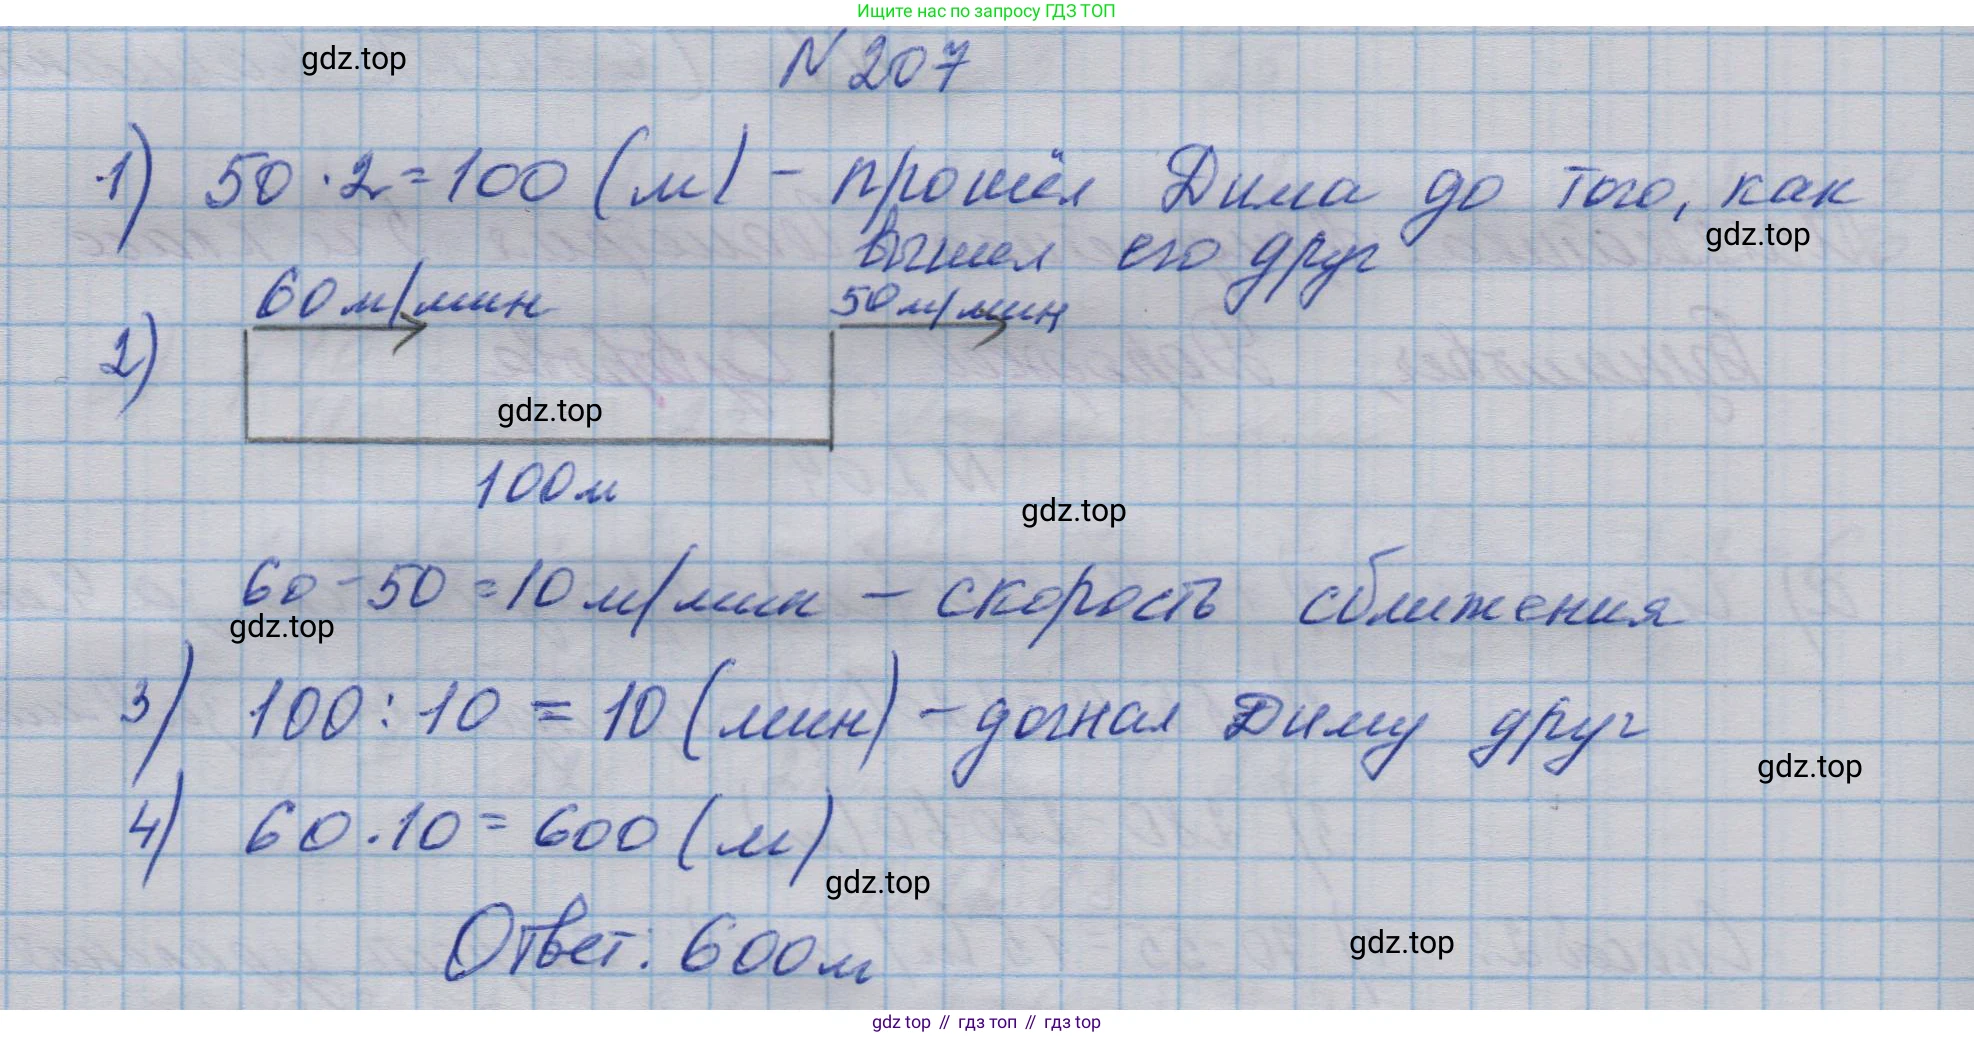 Ищите нас по запросу ГДЗ ТОП
gdz.top
N 207
1) 50 · 2 = 100 (м) - прошёл Дима до того, как
gdz.top
вышел его друг
60 м/мин
50 м/мин
2)
gdz.top
100 м
gdz.top
60 - 50 = 10 м/мин - скорость сближения
gdz.top
3) 100 : 10 = 10 (мин) - догнал Диму друг
gdz.top
4) 60 · 10 = 600 (м)
gdz.top
Ответ: 600 м
gdz.top
gdz top // гдз топ // gdz top